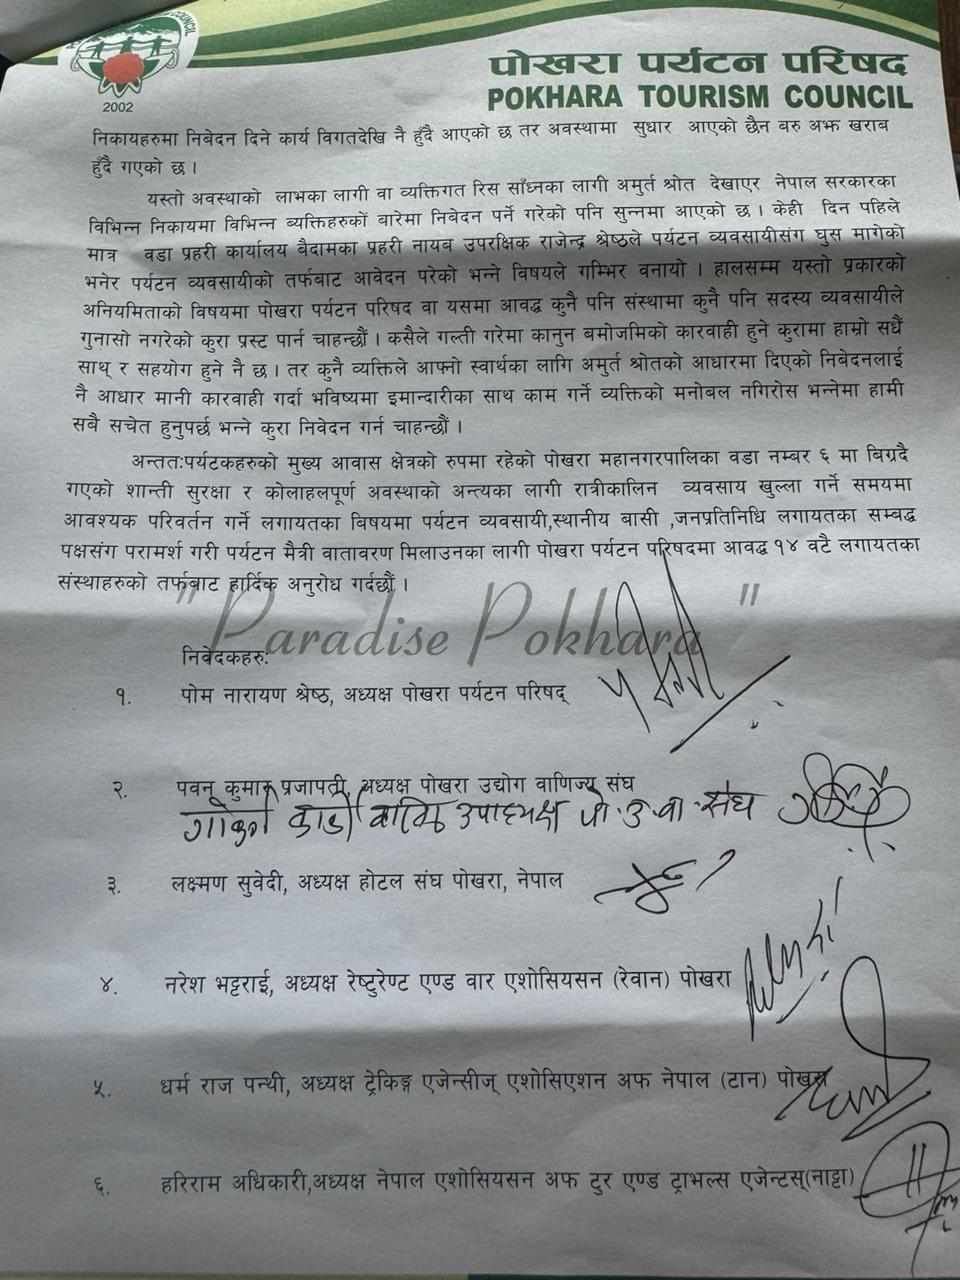 COUNCIL
2002
पोखरा पर्यटन परिषद
POKHARA TOURISM COUNCIL
निकायहरुमा निबेदन दिने कार्य विगतदेखि नै हुँदै आएको छ तर अवस्थामा सुधार आएको छैन बरु अझ खराब
हुँदै गएको छ ।
यस्तो अवस्थाको लाभका लागी वा व्यक्तिगत रिस साँध्नका लागी अमुर्त श्रोत देखाएर नेपाल सरकारका
विभिन्न निकायमा विभिन्न व्यक्तिहरुकों बारेमा निबेदन पर्ने गरेको पनि सुन्नमा आएको छ । केही दिन पहिले
मात्र वडा प्रहरी कार्यालय बैदामका प्रहरी नायव उपरक्षिक राजेन्द्र श्रेष्ठले पर्यटन व्यवसायीसंग घुस मागेको
भनेर पर्यटन व्यवसायीको तर्फबाट आवेदन परेको भन्ने विषयले गम्भिर वनायो । हालसम्म यस्तो प्रकारको
अनियमिताको विषयमा पोखरा पर्यटन परिषद वा यसमा आवद्ध कुनै पनि संस्थामा कुनै पनि सदस्य व्यवसायीले
गुनासो नगरेको कुरा प्रस्ट पार्न चाहन्छौं । कसैले गल्ती गरेमा कानुन बमोजमिको कारवाही हुने कुरामा हाम्रो सधैं
साथ् र सहयोग हुने नै छ । तर कुनै व्यक्तिले आफ्नो स्वार्थका लागि अमुर्त श्रोतको आधारमा दिएको निबेदनलाई
नै आधार मानी कारवाही गर्दा भविष्यमा इमान्दारीका साथ काम गर्ने व्यक्तिको मनोबल नगिरोस भन्नेमा हामी
सबै सचेत हुनुपर्छ भन्ने कुरा निवेदन गर्न चाहन्छौं ।
अन्ततःपर्यटकहरुको मुख्य आवास क्षेत्रको रुपमा रहेको पोखरा महानगरपालिका वडा नम्बर ६ मा बिग्रदै
गएको शान्ती सुरक्षा र कोलाहलपूर्ण अवस्थाको अन्त्यका लागी रात्रीकालिन व्यवसाय खुल्ला गर्ने समयमा
आवश्यक परिवर्तन गर्ने लगायतका विषयमा पर्यटन व्यवसायी,स्थानीय बासी ,जनप्रतिनिधि लगायतका सम्वद्ध
पक्षसंग परामर्श गरी पर्यटन मैत्री वातावरण मिलाउनका लागी पोखरा पर्यटन परिषदमा आवद्ध १४ वटै लगायतका
संस्थाहरुको तर्फबाट हार्दिक अनुरोध गर्दछौं ।
"Paradise Pokhara"
निवेदकहरु:
१. पोम नारायण श्रेष्ठ, अध्यक्ष पोखरा पर्यटन परिषद्
२. पवन कुमार प्रजापती, अध्यक्ष पोखरा उद्योग वाणिज्य संघ
उपाध्यक्ष पो.उ.वा.संघ
३. लक्ष्मण सुवेदी, अध्यक्ष होटल संघ पोखरा, नेपाल
४. नरेश भट्टराई, अध्यक्ष रेष्टुरेण्ट एण्ड वार एशोसियसन (रेवान) पोखरा
५. धर्म राज पन्थी, अध्यक्ष ट्रेकिङ्ग एजेन्सीज् एशोसिएशन अफ नेपाल (टान) पोखरा
६. हरिराम अधिकारी,अध्यक्ष नेपाल एशोसियसन अफ टुर एण्ड ट्राभल्स एजेन्टस्(नाट्टा)